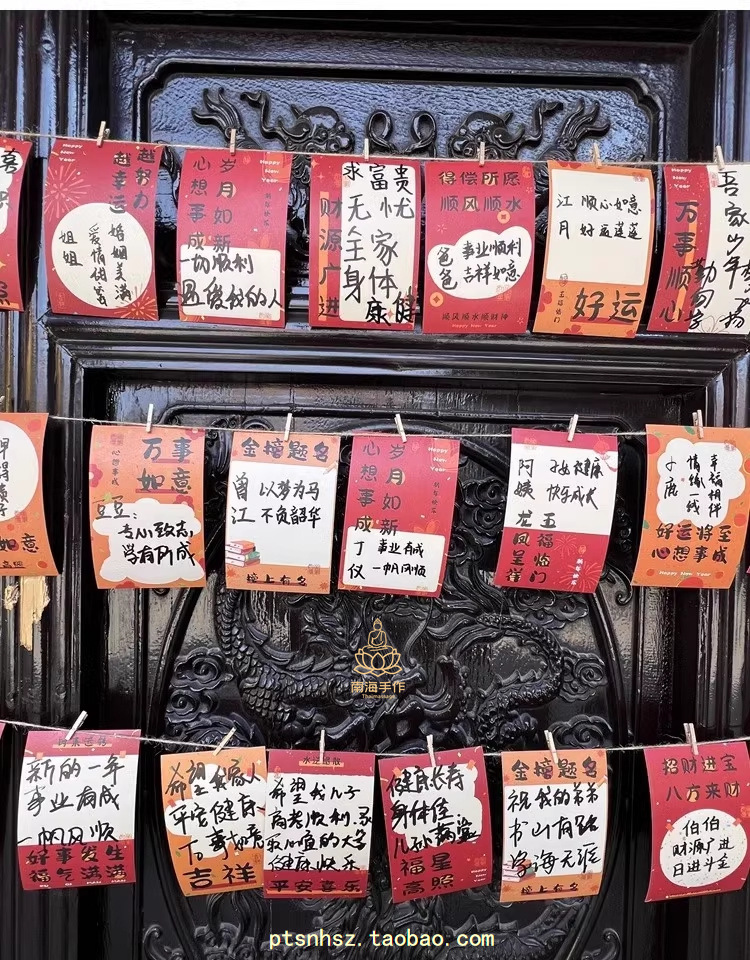 喜
Happy
New
Year
越努力
越幸运
姐姐
婚姻美满
爱情甜蜜
岁月如新
心想事成
Happy
New
Year
一切顺利
求富贵
无忧
全家
身体
康健
财源广进
得偿所愿
顺风顺水
爸爸
事业顺利
吉祥如意
顺风顺水顺财神
Happy New Year
江月
顺心如意
好运莲莲
五福临门
好运
Happy
New
Year
万事顺心
如意
心想事成
万事
如意
豆豆:
专心致志
学有所成
金榜题名
曾江
以梦为马
不负韶华
榜上有名
岁月如新
心想事成
丁仪
事业有成
一帆风顺
阿姨
身体健康
快乐成长
龙凤呈祥
五福临门
幸福相伴
情缘一线
好运将至
心想事成
Happy New Year
南海手作
新的一年
事业有成
一帆风顺
好事发生
福气满满
希望我家人
平安健康
万事如意
吉祥
希望我儿子
高考顺利.录
取心宜的大学
健康快乐
平安喜乐
健康长寿
身体佳
儿孙满堂
福星
高照
金榜题名
祝我的弟弟
书山有路
学海无涯
榜上有名
招财进宝
八方来财
伯伯
财源广进
日进斗金
ptsnhsz.taobao.com